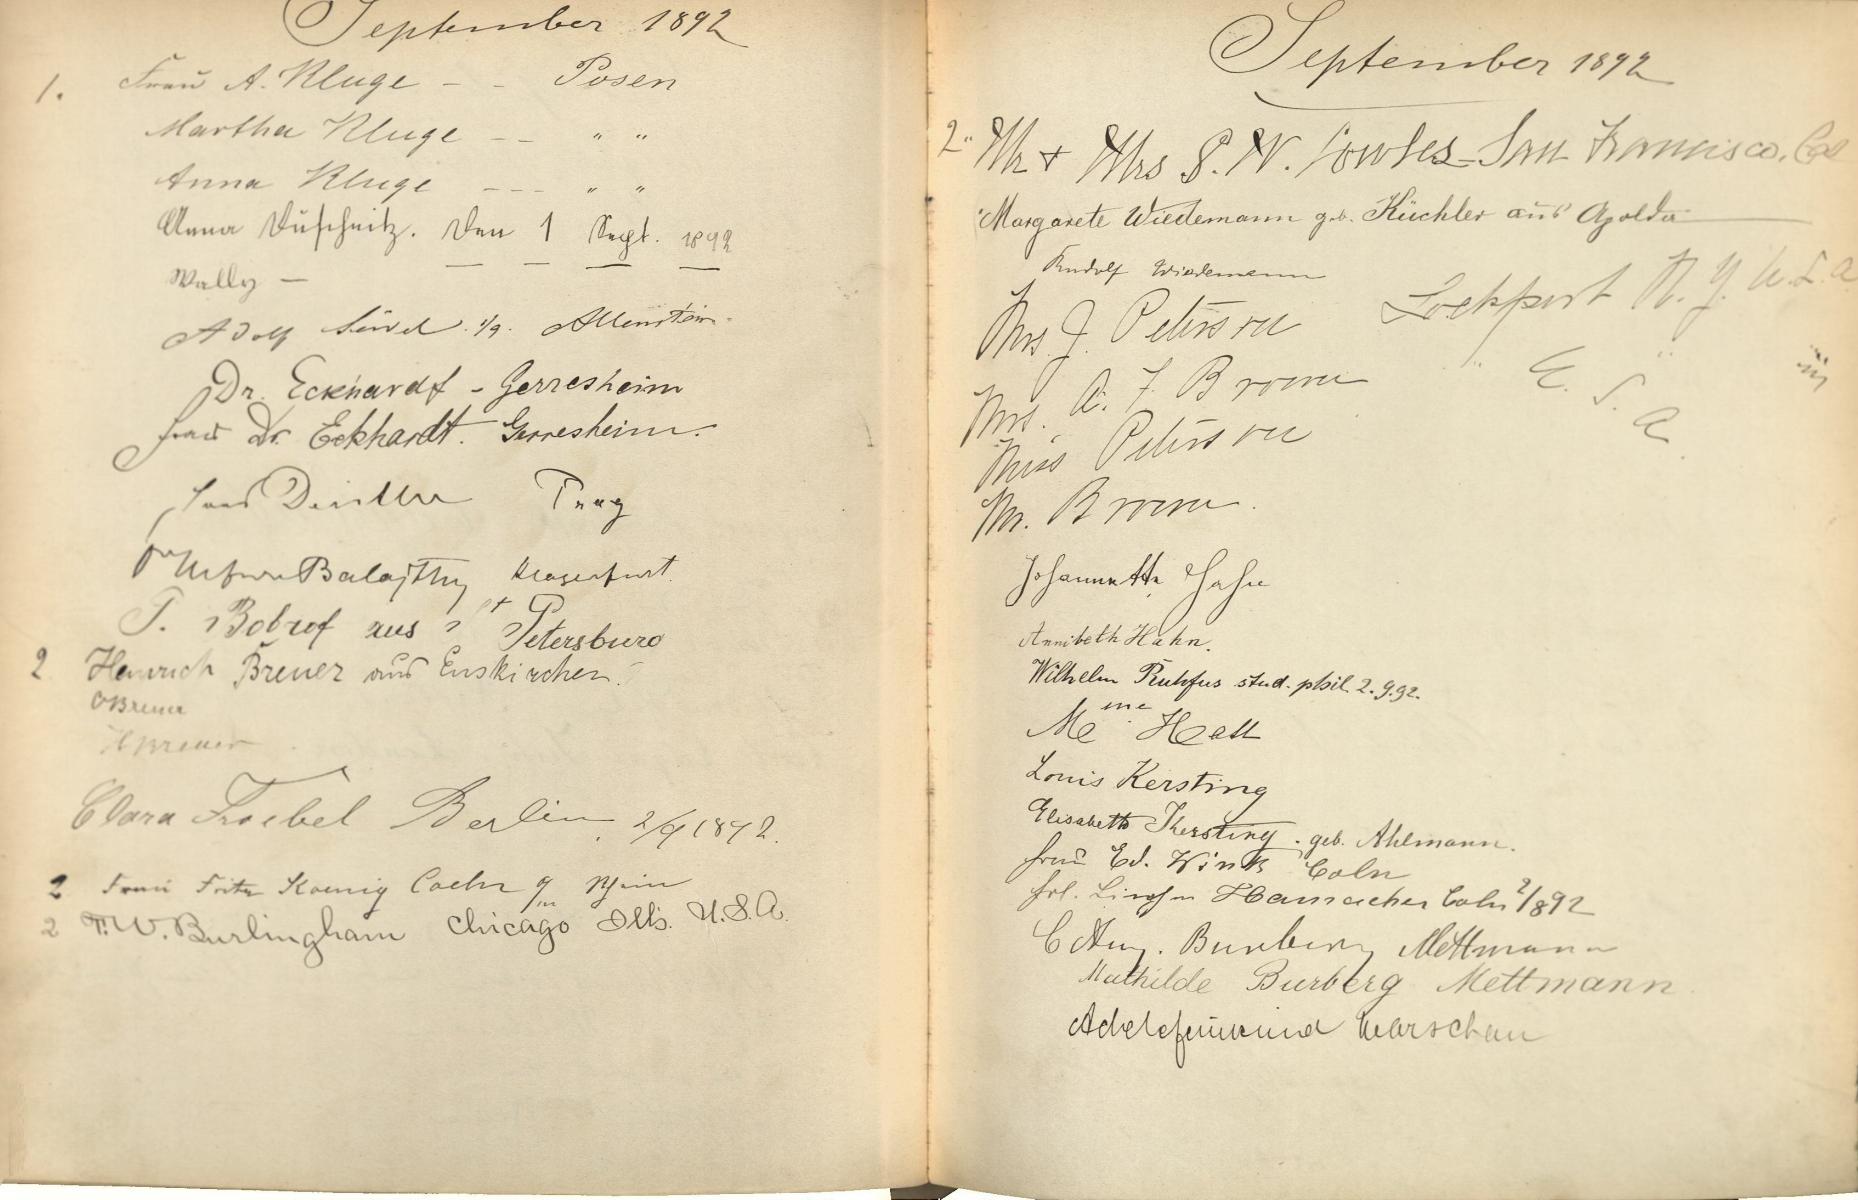 September 1892
1. Frau A. Kluge - - Posen
Martha Kluge - - " "
Anna Kluge - - - " "
Anna Duschnitz. Den 1 Sept. 1892
Wally -
Adolf 1/9. Allenstein
Dr. Eckhardt - Gerresheim
Frau Dr. Eckhardt. Gerresheim.
Prag
Klagenfurt.
T. Bobrof aus St Petersburg
2 Heinrich Breuer aus Euskirchen.
Breuer
H Breuer
Clara Froebel Berlin, 2/9 1892.
2 Frau Fritz Koenig Coeln a/ Rhein
2 T. W. Burlingham Chicago Ills. U.S.A.
September 1892
2. Mr + Mrs S. W. Fowles - San Francisco, Cal
Margarete Wiedemann geb. Küchler aus Apolda
Rudolf Wiedemann
Mrs J. Peterson Lockport N. Y. U.S.A
Mrs. A. F. Brown " U. S. A.
Miss Peterson
Mr. Brown.
Johannette Hahn
Annibeth Hahn.
Wilhelm Ruhfus stud. phil. 2.9.92.
Me me Hall
Louis Kersting
Elisabeth Kersting. geb. Ahlmann.
Frau Ed. Wink Coln
Frl. Hamacher Coln 2/892
C Aug. Burberg Mettmann
Mathilde Burberg Mettmann
Warschau